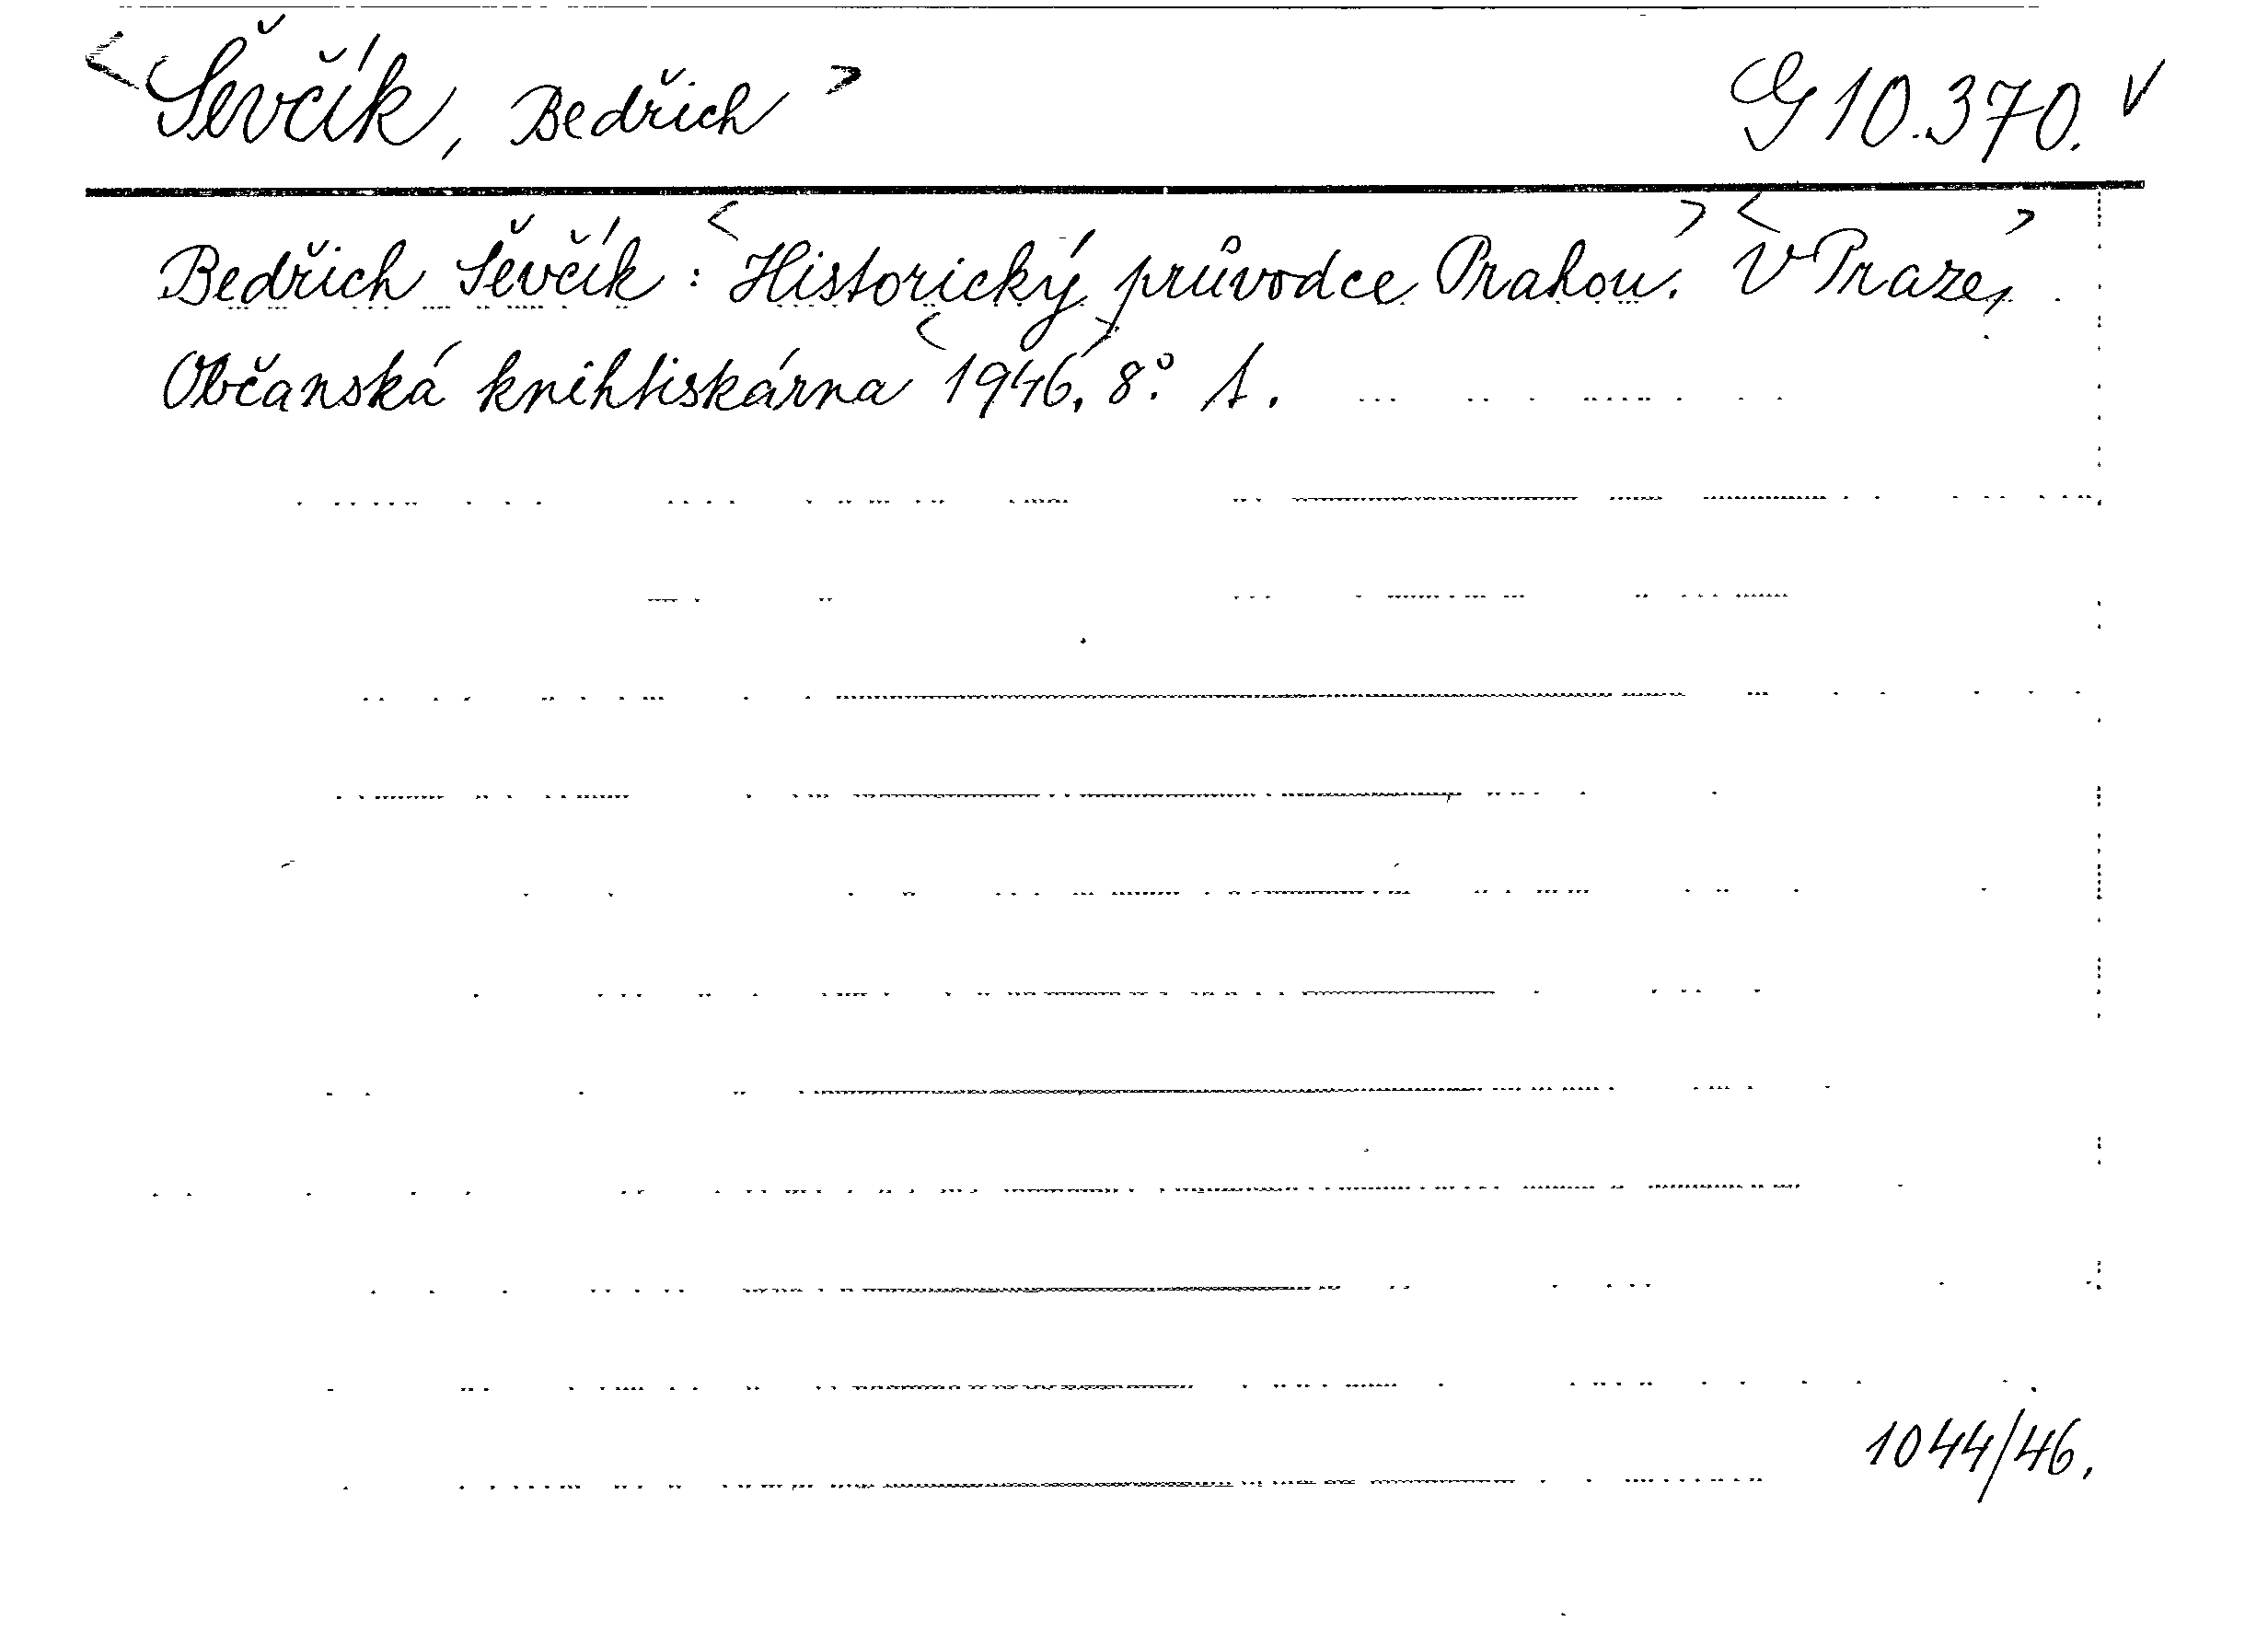 <Ševčík, Bedřich> G 10.370. √
Bedřich Ševčík: <Historický průvodce Prahou.> <V Praze,>
Občanská knihtiskárna <1946,> 8°. 1.
1044/46.